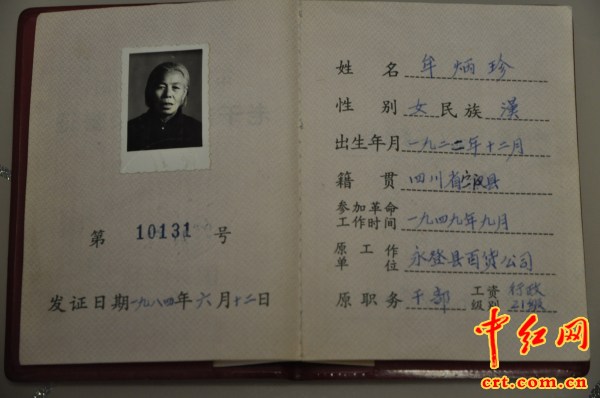 第 10131 号
发证日期一九八四年六月十二日
姓名 牟炳珍
性别 女 民族 漢
出生年月 一九二二年十二月
籍贯 四川省宣汉县
参加革命工作时间 一九四九年九月
原工作单位 永登县百货公司
原职务 干部 工资级别 行政21级
中红网
crt.com.cn